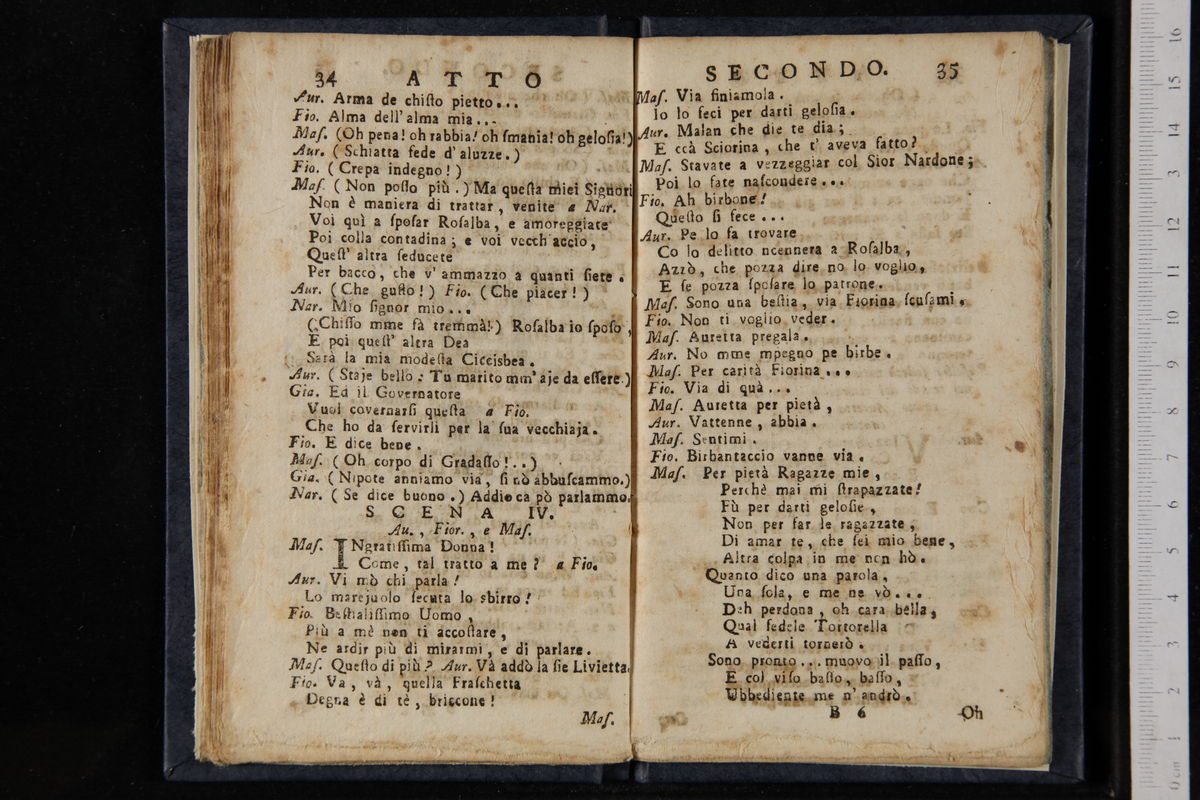 34 ATTO
Aur. Arma de chiſto pietto...
Fio. Alma dell' alma mia...
Maſ. (Oh pena! oh rabbia! oh ſmania! oh geloſia!)
Aur. (Schiatta fede d' aluzze.)
Fio. (Crepa indegno!)
Maſ. (Non poſſo più.) Ma queſta miei Signori
Non è maniera di trattar, venite a Nar.
Voi quì a ſpoſar Roſalba, e amoreggiate
Poi colla contadina; e voi vecch'accio,
Queſt' altra ſeducete
Per bacco, che v' ammazzo a quanti ſiete.
Aur. (Che guſto!) Fio. (Che piacer!)
Nar. Mio ſignor mio...
(Chiſſo mme fà tremmà!) Roſalba io ſpoſo,
E poi queſt' altra Dea
Sarà la mia modeſta Ciccisbea.
Aur. (Staje bello: Tu marito mm' aje da eſſere)
Gia. Ed il Governatore
Vuol covernarſi queſta a Fio.
Che ho da ſervirli per la ſua vecchiaja.
Fio. E dice bene.
Maſ. (Oh corpo di Gradaſſo!..)
Gia. (Nipote anniamo via, ſi nò abbuſcammo.)
Nar. (Se dice buono.) Addio ca pò parlammo.
SCENA IV.
Au., Fior., e Maſ.
Maſ. INgratiſſima Donna!
Come, tal tratto a me? a Fio.
Aur. Vi mò chi parla!
Lo marejuolo ſecuta lo sbirro!
Fio. Beſtialiſſimo Uomo,
Più a mè non ti accoſtare,
Ne ardir più di mirarmi, e di parlare.
Maſ. Queſto di più? Aur. Và addò la ſie Livietta.
Fio. Va, và, quella Fraſchetta
Degna è di tè, briccone!
Maſ.
SECONDO. 35
Maſ. Via finiamola.
Io lo feci per darti geloſia.
Aur. Malan che die te dia;
E ccà Sciorina, che t' aveva fatto?
Maſ. Stavate a vezzeggiar col Sior Nardone;
Poi lo fate naſcondere...
Fio. Ah birbone!
Queſto ſi fece...
Aur. Pe lo fa trovare
Co lo delitto ncennera a Roſalba,
Azzò, che pozza dire no lo voglio,
E ſe pozza ſpoſare lo patrone.
Maſ. Sono una beſtia, via Fiorina ſcuſami.
Fio. Non ti voglio veder.
Maſ. Auretta pregala.
Aur. No mme mpegno pe birbe.
Maſ. Per carità Fiorina...
Fio. Via di quà...
Maſ. Auretta per pietà,
Aur. Vattenne, abbia.
Maſ. Sentimi.
Fio. Birbantaccio vanne via.
Maſ. Per pietà Ragazze mie,
Perchè mai mi ſtrapazzate!
Fù per darti geloſie,
Non per far le ragazzate,
Di amar te, che ſei mio bene,
Altra colpa in me non hò.
Quanto dico una parola,
Una ſola, e me ne vò...
Deh perdona, oh cara bella,
Qual fedele Tortorella
A vederti tornerò.
Sono pronto... muovo il paſſo,
E col viſo baſſo, baſſo,
Ubbediente me n' andrò.
B 6 Oh